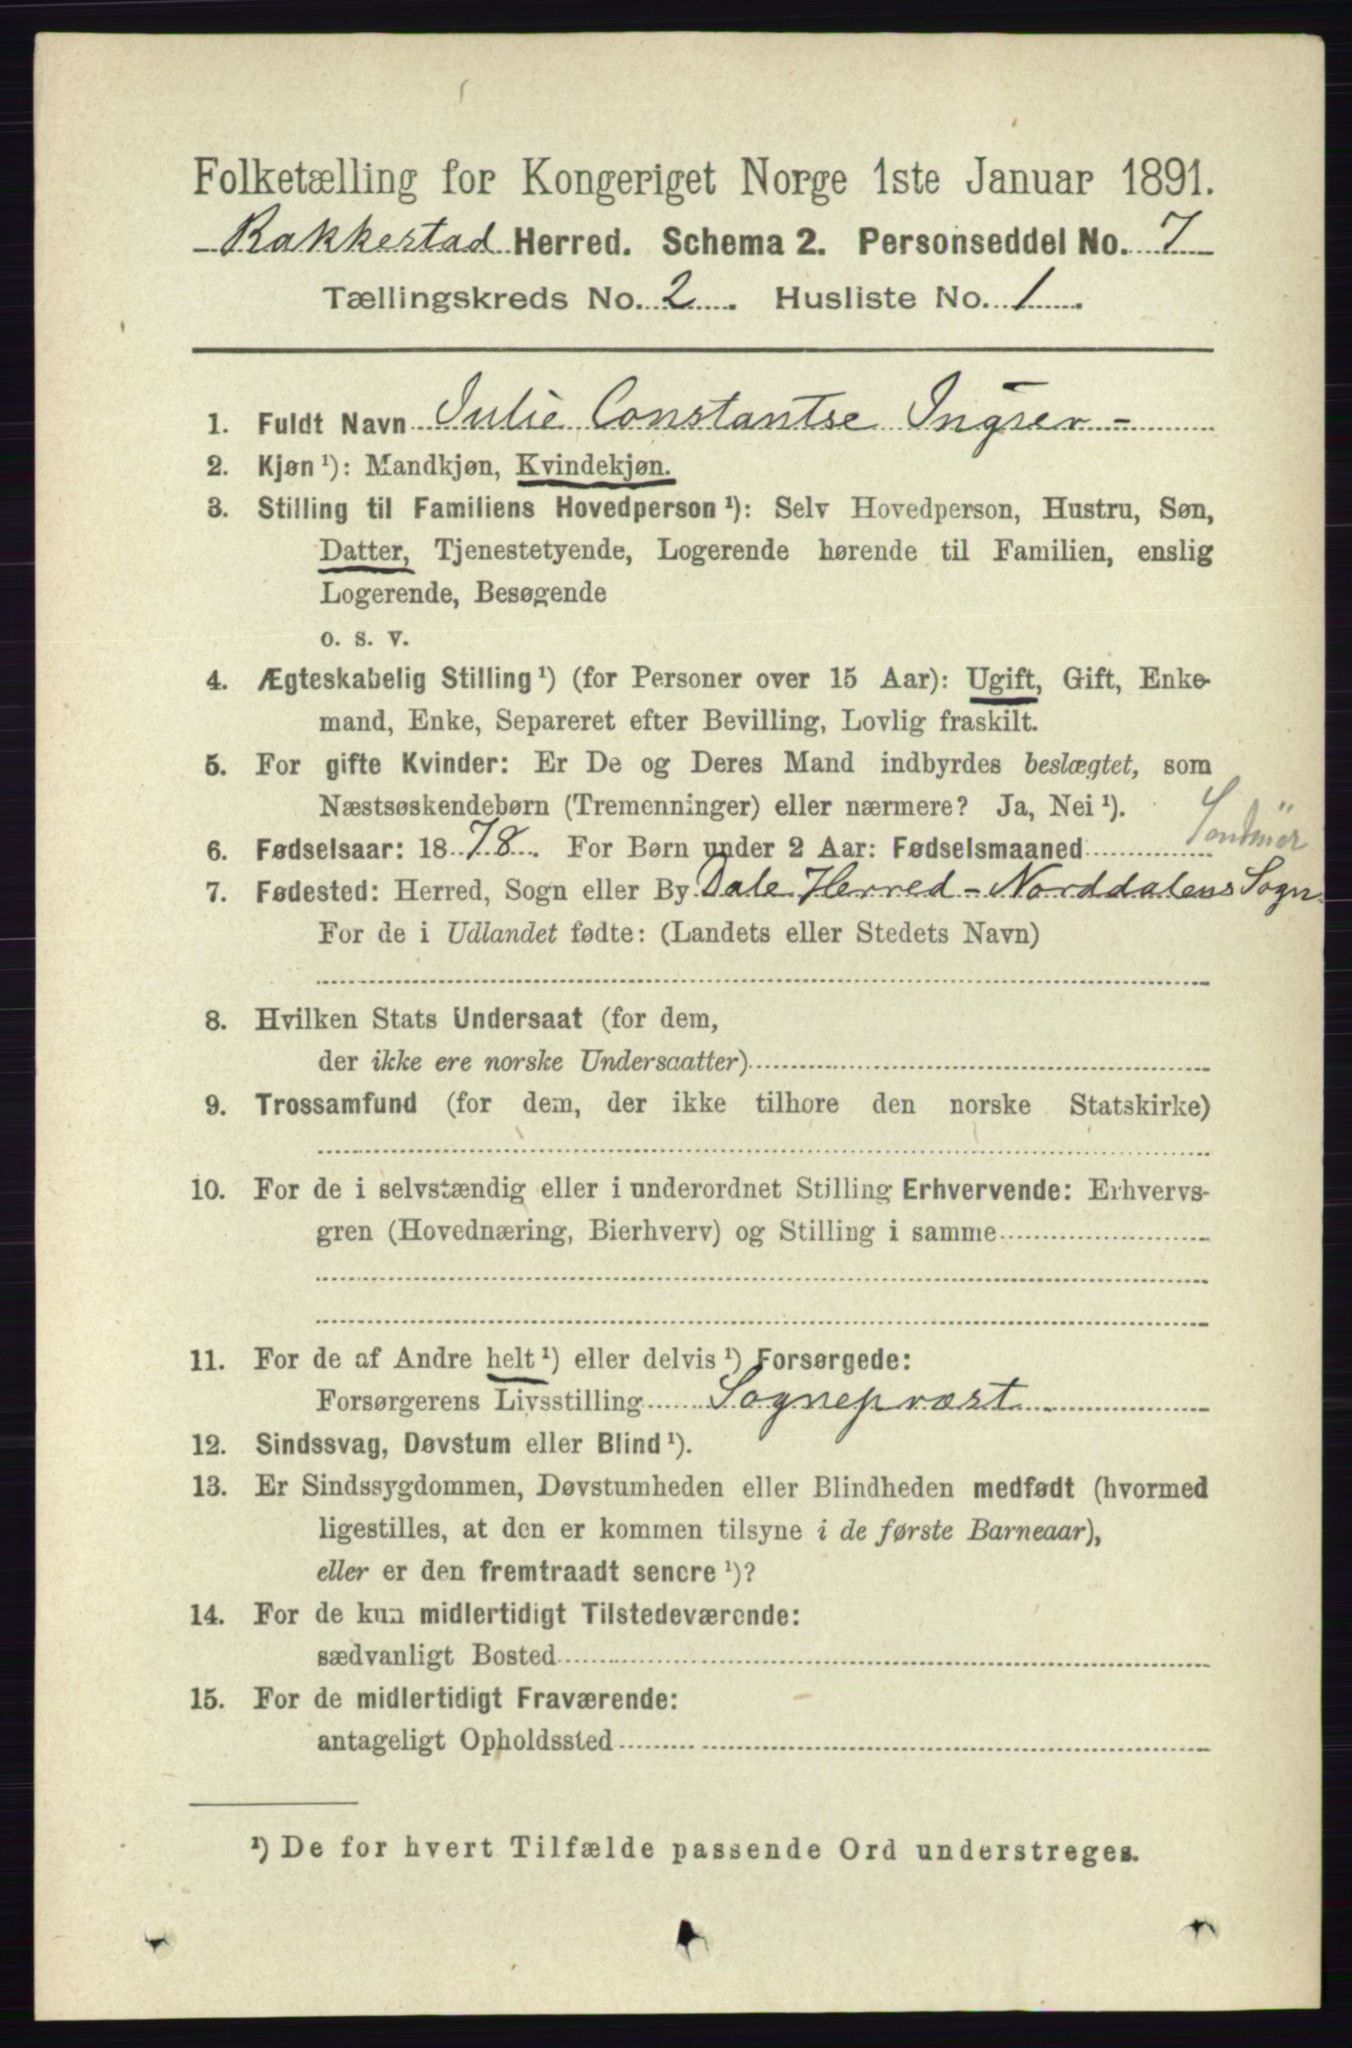 Folketælling for Kongeriget Norge 1ste Januar 1891.
Rakkestad Herred. Schema 2. Personseddel No. 7
Tællingskreds No. 2. Husliste No. 1.
1. Fuldt Navn Julie Constantse Ingier -
2. Kjøn ¹): Mandkjøn, Kvindekjøn.
3. Stilling til Familiens Hovedperson ¹): Selv Hovedperson, Hustru, Søn,
Datter, Tjenestetyende, Logerende hørende til Familien, enslig
Logerende, Besøgende
o. s. v.
4. Ægteskabelig Stilling ¹) (for Personer over 15 Aar): Ugift, Gift, Enke-
mand, Enke, Separeret efter Bevilling, Lovlig fraskilt.
5. For gifte Kvinder: Er De og Deres Mand indbyrdes beslægtet, som
Næstsøskendebørn (Tremenninger) eller nærmere? Ja, Nei ¹).
Søndmör
6. Fødselsaar: 1878. For Børn under 2 Aar: Fødselsmaaned
7. Fødested: Herred, Sogn eller By Dale Herred - Norddalens Sogn.
For de i Udlandet fødte: (Landets eller Stedets Navn)
8. Hvilken Stats Undersaat (for dem,
der ikke ere norske Undersaatter)
9. Trossamfund (for dem, der ikke tilhore den norske Statskirke)
10. For de i selvstændig eller i underordnet Stilling Erhvervende: Erhvervs-
gren (Hovednæring, Bierhverv) og Stilling i samme
11. For de af Andre helt ¹) eller delvis ¹) Forsørgede:
Forsørgerens Livsstilling Sognepræst
12. Sindssvag, Døvstum eller Blind ¹).
13. Er Sindssygdommen, Døvstumheden eller Blindheden medfødt (hvormed
ligestilles, at den er kommen tilsyne i de første Barneaar),
eller er den fremtraadt senere ¹)?
14. For de kun midlertidigt Tilstedeværende:
sædvanligt Bosted
15. For de midlertidigt Fraværende:
antageligt Opholdssted
¹) De for hvert Tilfælde passende Ord understreges.